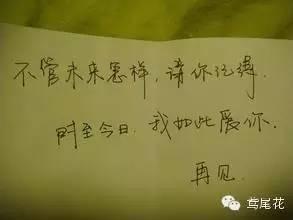 不管未来怎样，请你记得.
时至今日.我如此爱你.
再见.
鸢尾花